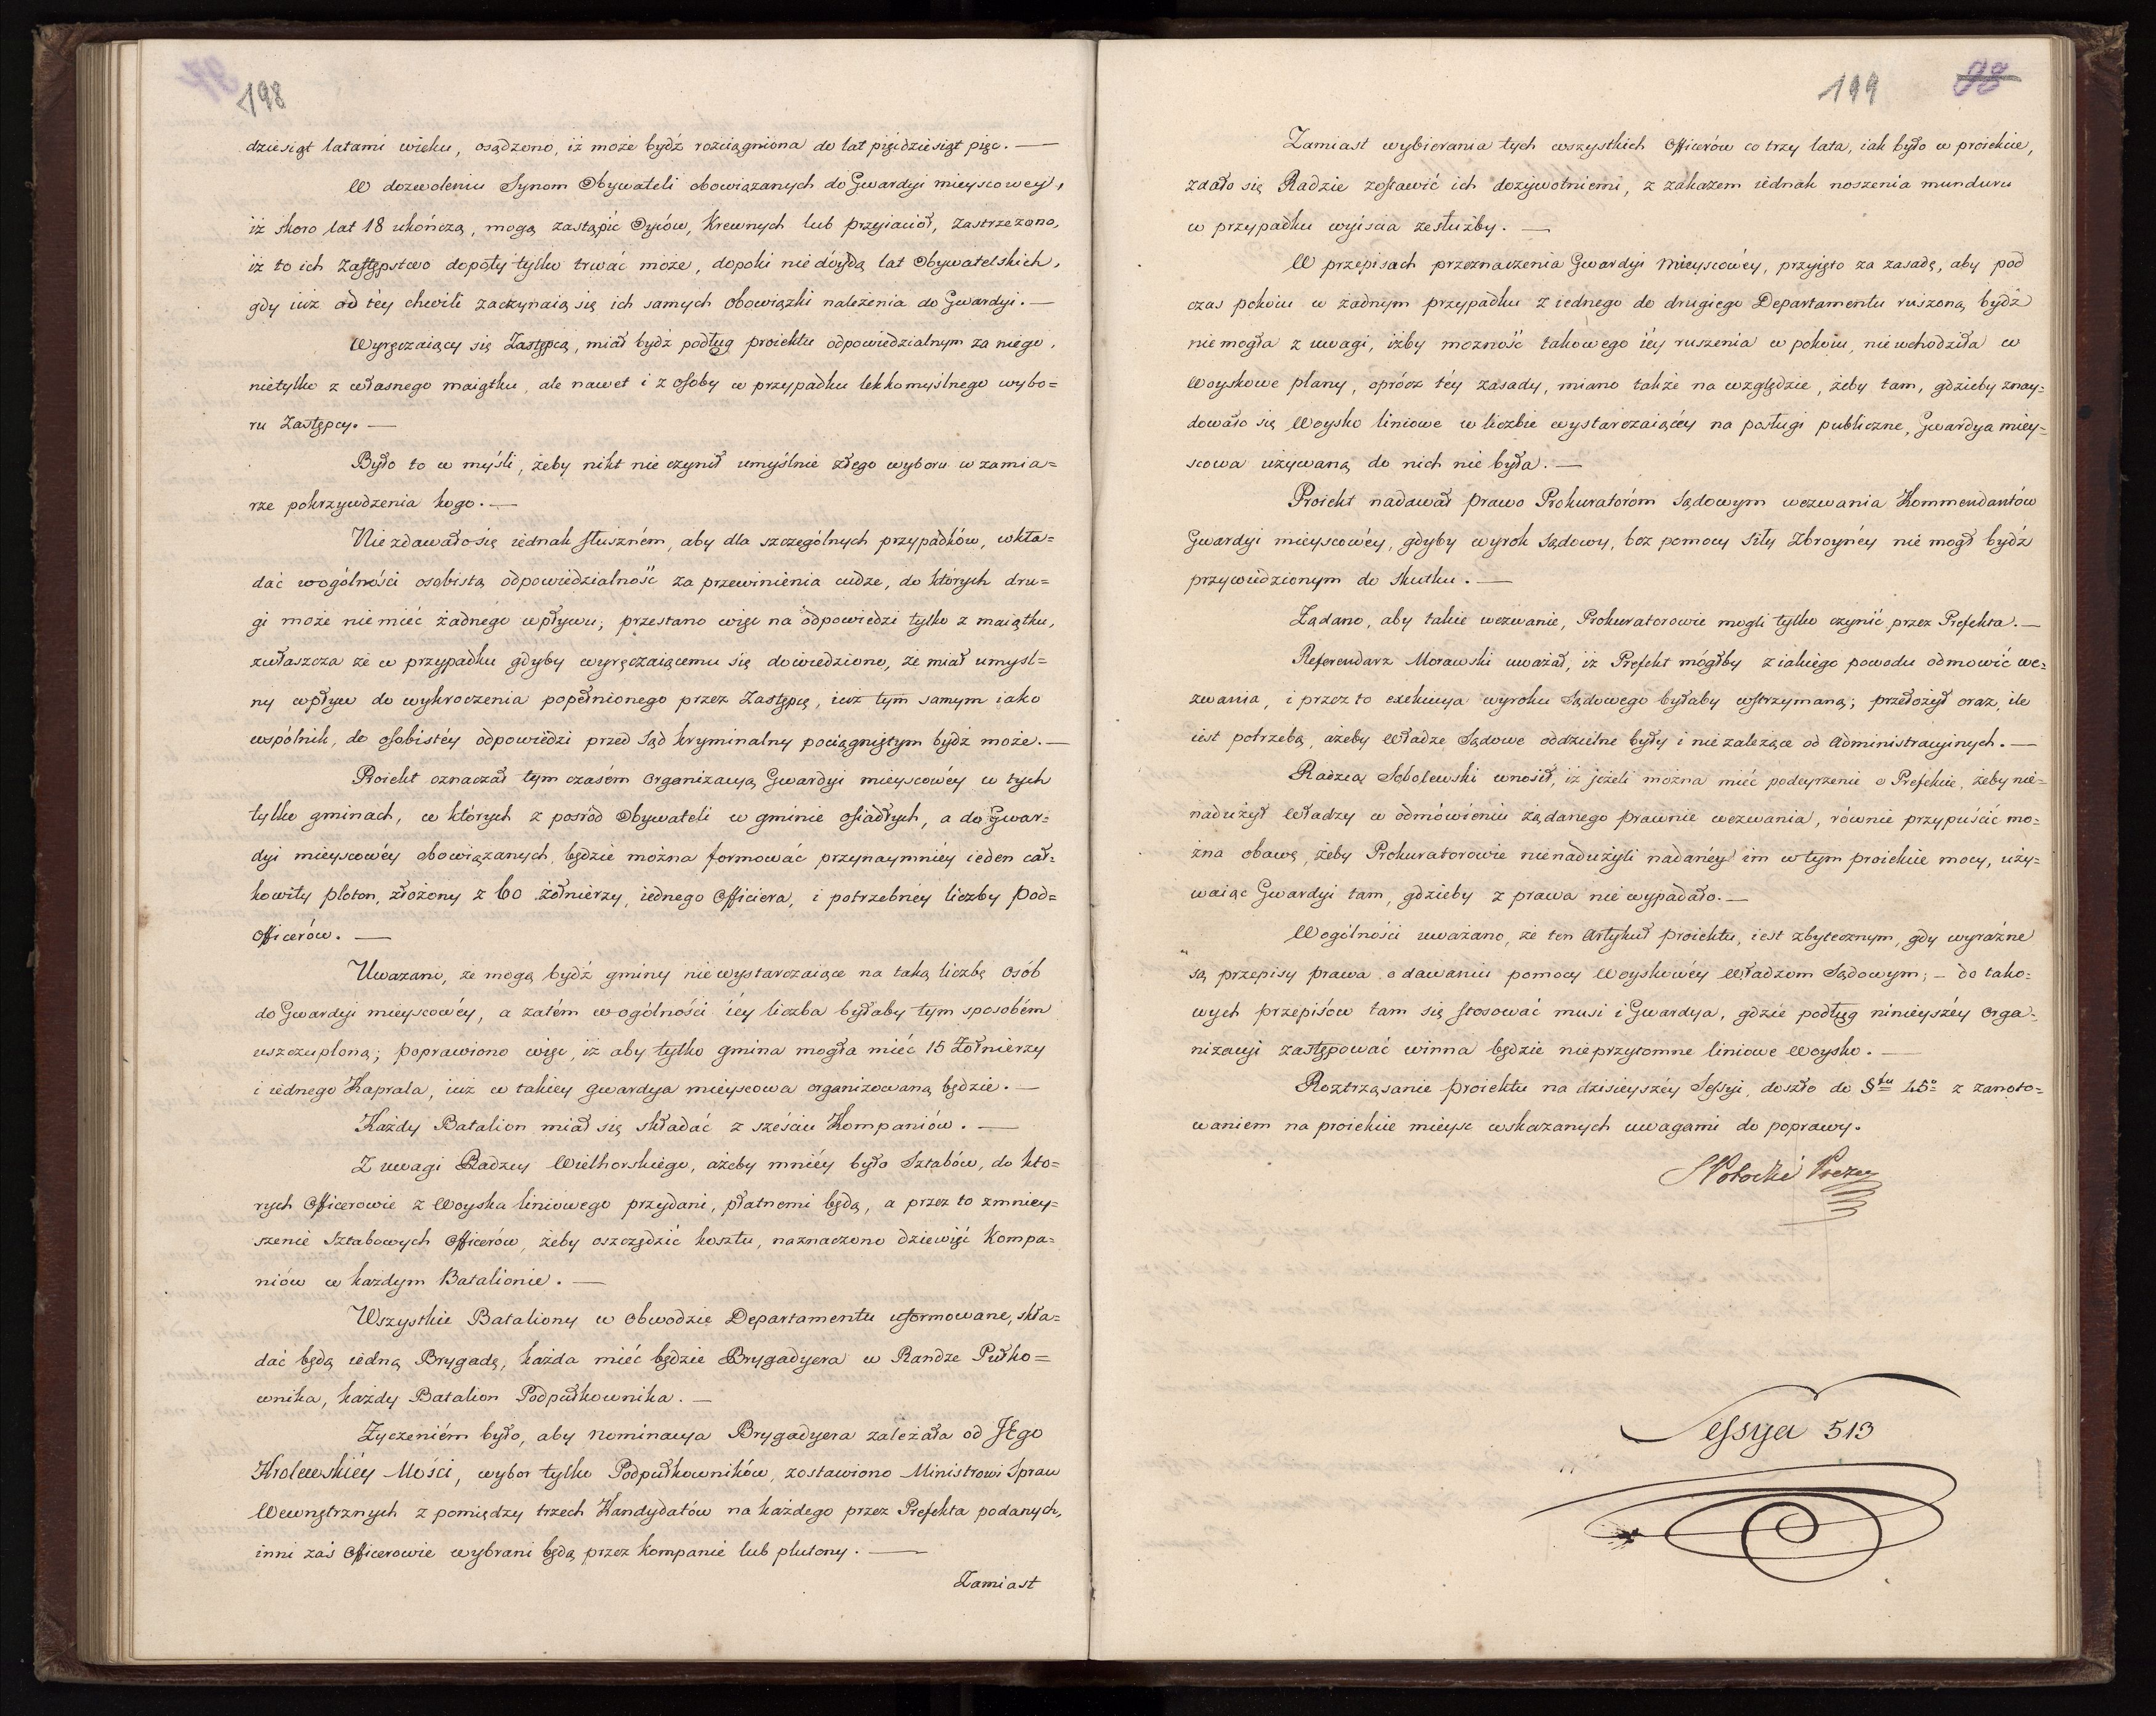 198
dziesiąt latami wieku, osądzono, iż może bydź rozciągniona do lat pięćdziesiąt pięc. —
W dozwoleniu Synom Obywateli obowiązanych do Gwardyi mieyscowey,
iż skoro lat 18 ukończą, mogą zastąpić Oyców, Krewnych lub przyiaciół, zastrzeżono,
iż to ich zastępstwo dopóty tylko trwać może, dopoki nie dóydą lat Obywatelskich,
gdy iuż od téy chwili zaczynaią się ich samych obowiązki należenia do Gwardyi. —
Wyręczaiący się Zastępcą, miał bydź podług proiektu odpowiedzialnym za niego,
nietylko z własnego maiątku, ale nawet i z osoby w przypadku lekkomyślnego wybo=
ru Zastępcy. —
Było to w myśli, żeby nikt nie czynił umyślnie złego wyboru w zamia=
rze pokrzywdzenia kogo. —
Nie zdawało się iednak słuszném, aby dla szczególnych przypadków, wkła=
dać wogólności osobistą odpowiedzialność za przewinienia cudze, do których dru=
gi może nie mieć żadnego wpływu; przestano więc na odpowiedzi tylko z maiątku,
zwłaszcza że w przypadku gdyby wyręczaiącemu się dowiedziono, że miał umyśl=
ny wpływ do wykroczenia popełnionego przez Zastępcę, iuż tym samym iako
wspólnik, do osobistéy odpowiedzi przed Sąd kryminalny pociągniętym bydź może. —
Proiekt oznaczał tym czasém organizacyą Gwardyi mieyscowéy w tych
tylko gminach, w których z pośród Obywateli w gminie osiadłych, a do Gwar=
dyi mieyscowéy obowiązanych, będzie można formować przynaymniéy ieden cał=
kowity ploton, złożony z 60 żołnierzy, iednego Officiera, i potrzebnéy liczby Pod=
Officerów. —
Uważano, że mogą bydź gminy nie wystarczaiące na taką liczbę osób
do Gwardyi mieyscowéy, a zatém w ogólności iéy liczba byłaby tym sposobém
uszczuploną; poprawiono więc, iż aby tylko gmina mogła mieć 15 Żołnierzy
i iednego Kaprala, iuż w takiéy gwardya mieyscowa organizowaną będzie. —
Każdy Batalion miał się składać z sześciu Kompaniów. —
Z uwagi Radzcy Wielhorskiego, ażeby mniéy było Sztabów, do któ=
rych Officerowie z Woyska liniowego przydani, płatnemi będą, a przez to zmniey=
szenie Sztabowych Officerów, żeby oszczędzić kosztu, naznaczono dziewięć Kompa=
niów w każdym Batalionie. —
Wszystkie Bataliony w obwodzie Departamentu uformowane, skła=
dać będą iedną Brygadę, każda mieć będzie Brygadyera w Randze Pułko=
wnika, każdy Batalion Podpułkownika. —
Życzeniém było, aby nominacya Brygadyera zależała od JEgo
Krolewskiéy Mości, wybor tylko Podpułkowników, zostawiono Ministrowi Spraw
Wewnętrznych z pomiędzy trzech Kandydatów na każdego przez Prefekta podanych,
inni zaś Officerowie wybrani będą przez kompanie lub plutony. —
Zamiast
199 98
Zamiast wybierania tych wszystkich Officerów co trzy lata, iak było w proiekcie,
zdało się Radzie zostawić ich dożywotniemi, z zakazem iednak noszenia munduru
w przypadku wyiścia ze służby. —
W przepisach przeznaczenia Gwardyi Mieyscowéy, przyięto za zasadę, aby pod
czas pokoiu w żadnym przypadku z iednego do drugiego Departamentu ruszoną bydź
nie mogła z uwagi, iżby możność takowego iéy ruszenia w pokoiu, nie wchodziła w
Woyskowe plany, oprócz téy zasady, miano także na względzie, żeby tam, gdzieby znay=
dowało się Woysko liniowe w liczbie wystarczaiącéy na posługi publiczne, Gwardya miey=
scowa używaną do nich nie była. —
Proiekt nadawał prawo Prokuratoróm Sądowym wezwania Kommendantów
Gwardyi mieyscowéy, gdyby wyrok Sądowy, bez pomocy Siły Zbroynéy nie mogł bydź
przywiedzionym do skutku. —
Żądano, aby takie wezwanie, Prokuratorowie mogli tylko czynić przez Prefekta. —
Referendarz Morawski uważał, iż Prefekt mógłby z iakiego powodu odmowić we=
zwania, i przez to exekucya wyroku Sądowego byłaby wstrzymaną; przełożył oraz, ile
iest potrzebą, ażeby Władze Sądowe oddzielne były i nie zależące od Administracyinych. —
Radzca Sobolewski wnosił, iż jeżeli można mieć podeyrzenie o Prefekcie, żeby nie=
nadużył Władzy w odmówieniu żądanego prawnie wezwania, równie przypuścić mo=
żna obawę, żeby Prokuratorowie nienadużyli nadanéy im w tym proiekcie mocy, uży=
waiąc Gwardyi tam, gdzieby z prawa nie wypadało. —
Wogólności uważano, że ten Artykuł proiektu, iest zbytecznym, gdy wyraźne
są przepisy prawa o dawaniu pomocy Woyskowéy Władzom Sądowym; — do tako=
wych przepisów tam się stosować musi i Gwardya, gdzie podług ninieyszéy Orga=
nizacyi zastępować winna będzie nieprzytomne liniowe Woysko. —
Roztrząsanie proiektu na dzisieyszéy Sessyi, doszło do §fu 45o z zanoto=
waniem na proiekcie mieysc wskazanych uwagami do poprawy.
SPotocki Prezes
Sessya 513